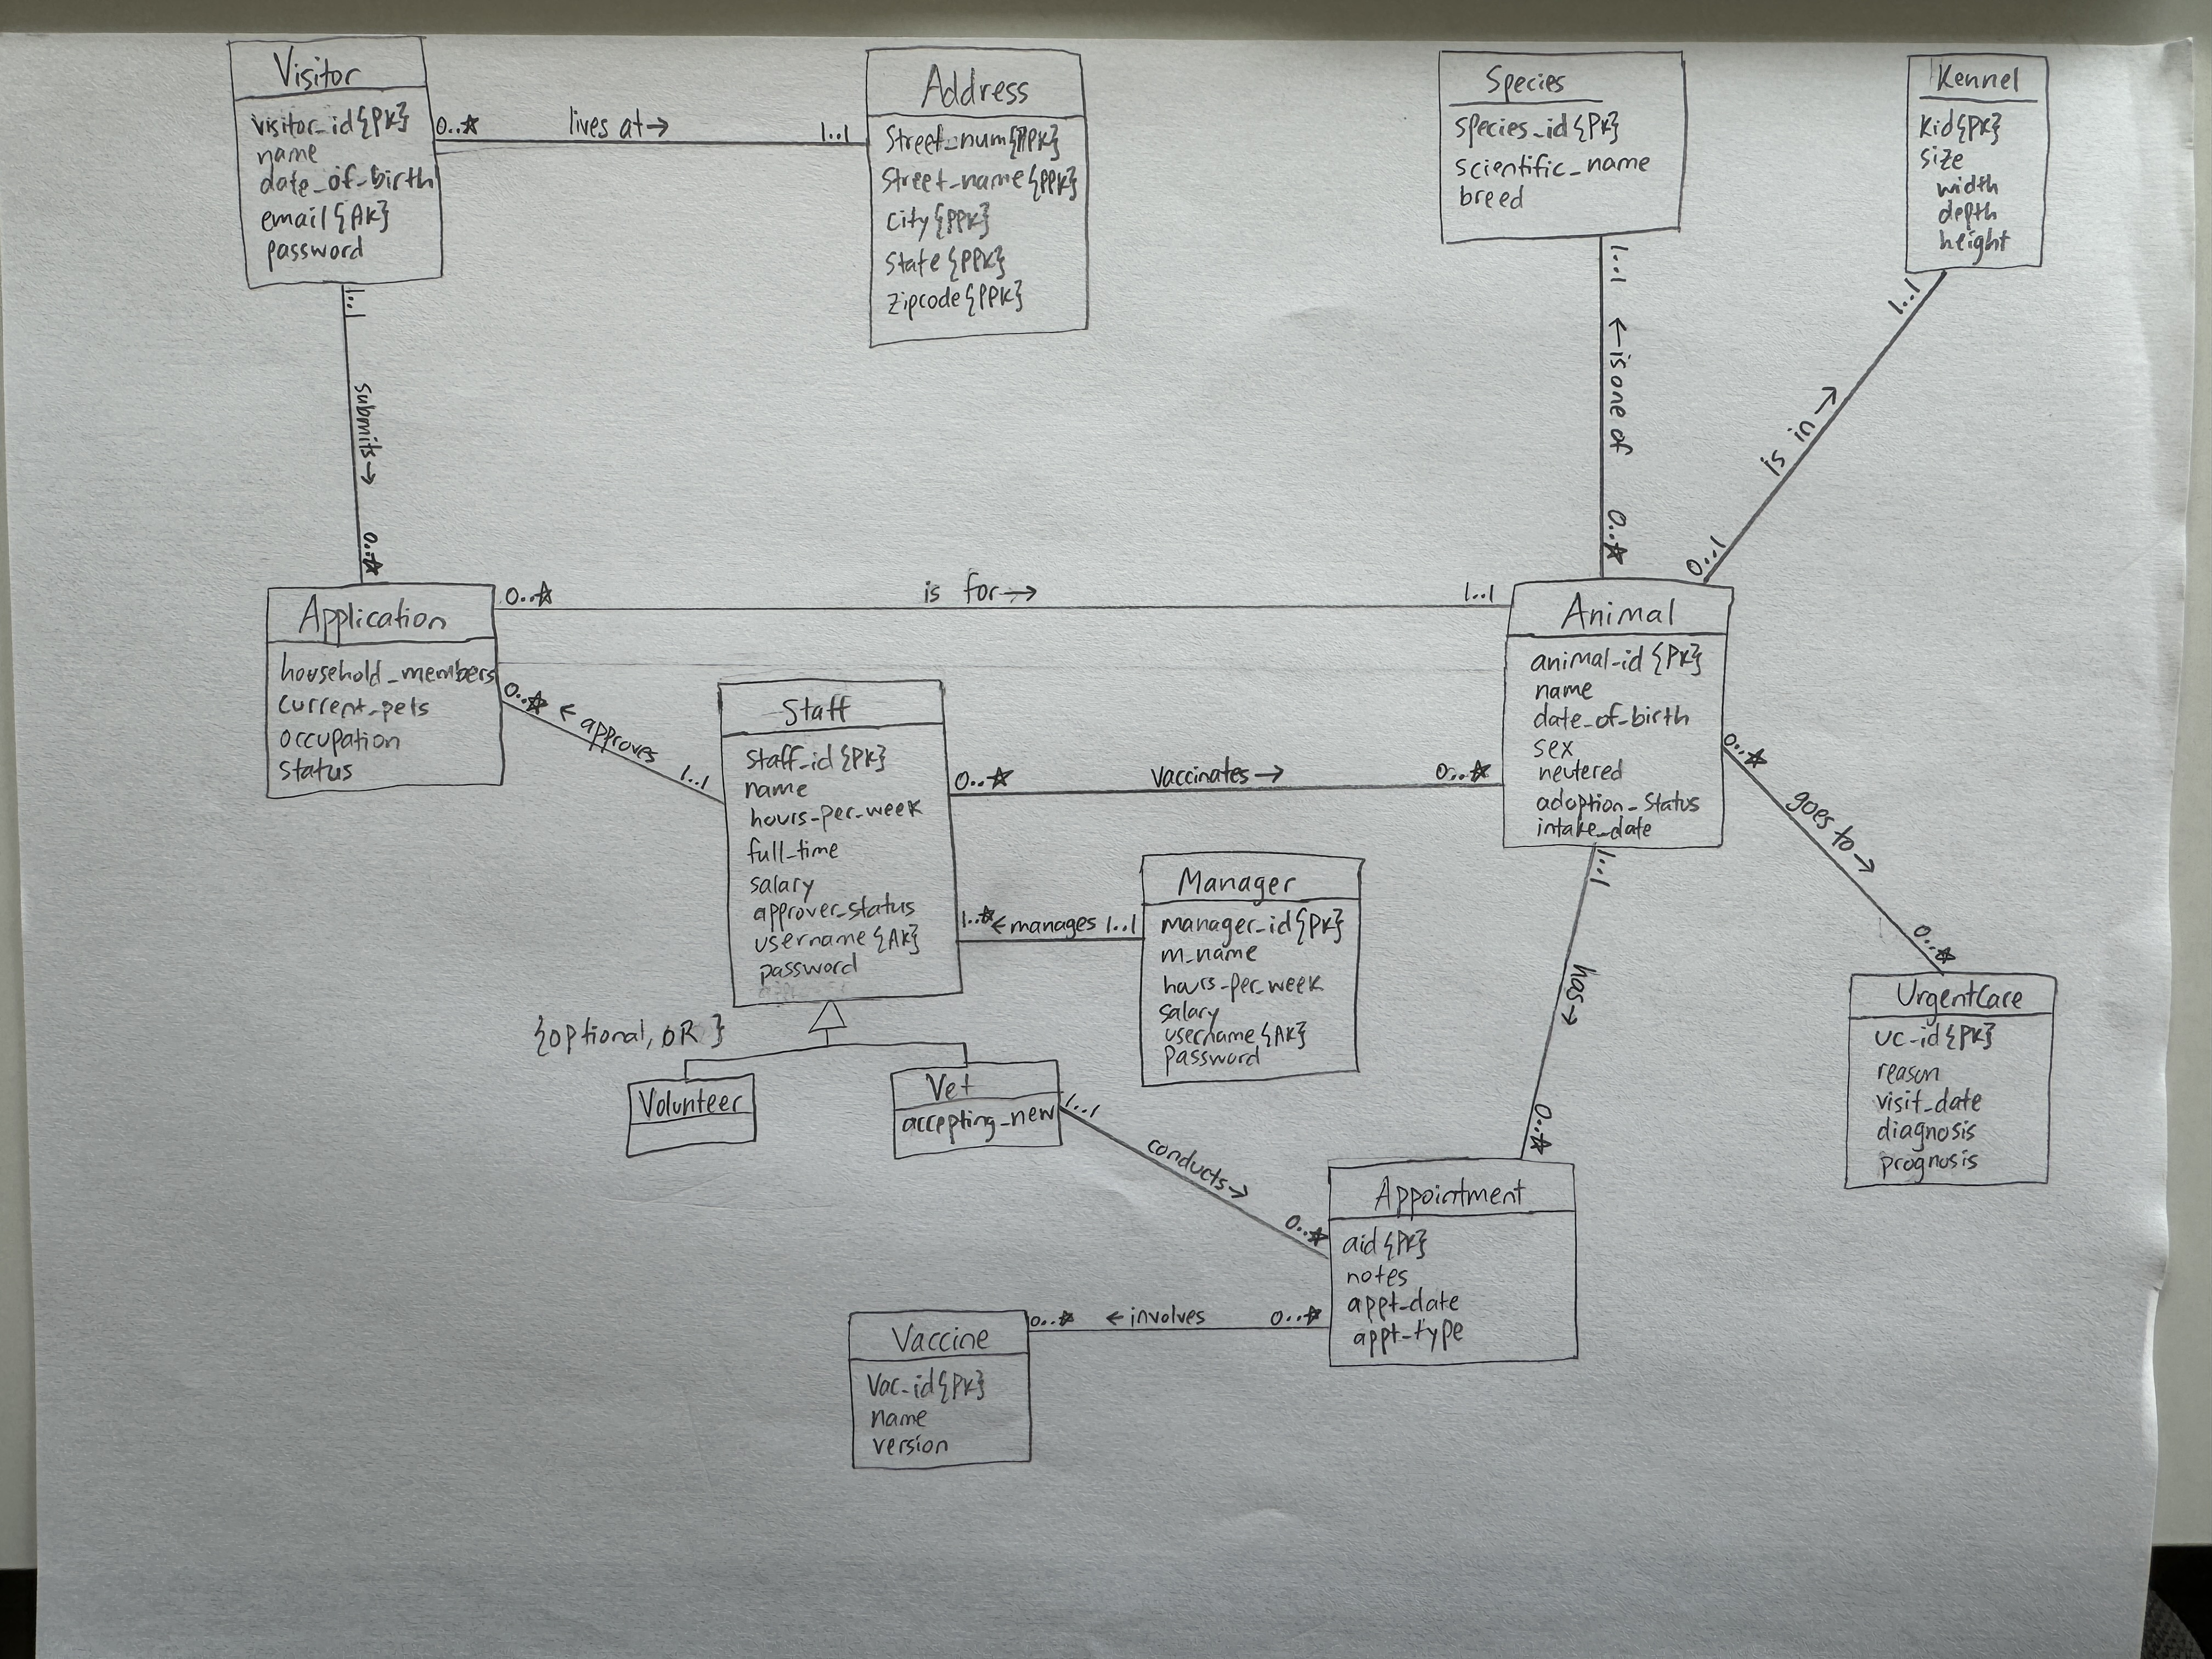 Visitor
visitor_id{PK}
name
date_of_birth
email{AK}
password
0..*
lives at→
1..1
Address
Street_num{PPK}
Street_name{PPK}
City{PPK}
State{PPK}
Zipcode{PPK}
Species
species_id{PK}
scientific_name
breed
Kennel
kid{PK}
size
width
depth
height
1..1
submits→
0..*
1..1
←is one of
0..*
1..1
is in→
0..1
Application
household_members
current_pets
occupation
status
0..*
is for→
1..1
Animal
animal_id{PK}
name
date_of_birth
sex
neutered
adoption_status
intake_date
0..*
←approves
1..1
Staff
Staff_id{PK}
name
hours_per_week
full_time
salary
approver_status
username{AK}
password
0..*
vaccinates→
0..*
1..*
←manages
1..1
Manager
manager_id{PK}
m_name
hours_per_week
salary
username{AK}
password
0..*
goes to→
0..*
UrgentCare
uc_id{PK}
reason
visit_date
diagnosis
prognosis
1..1
has→
0..*
{optional, OR }
Volunteer
Vet
accepting_new
1..1
conducts→
0..*
Appointment
aid{PK}
notes
appt_date
appt_type
0..*
←involves
0..*
Vaccine
Vac_id{PK}
name
version